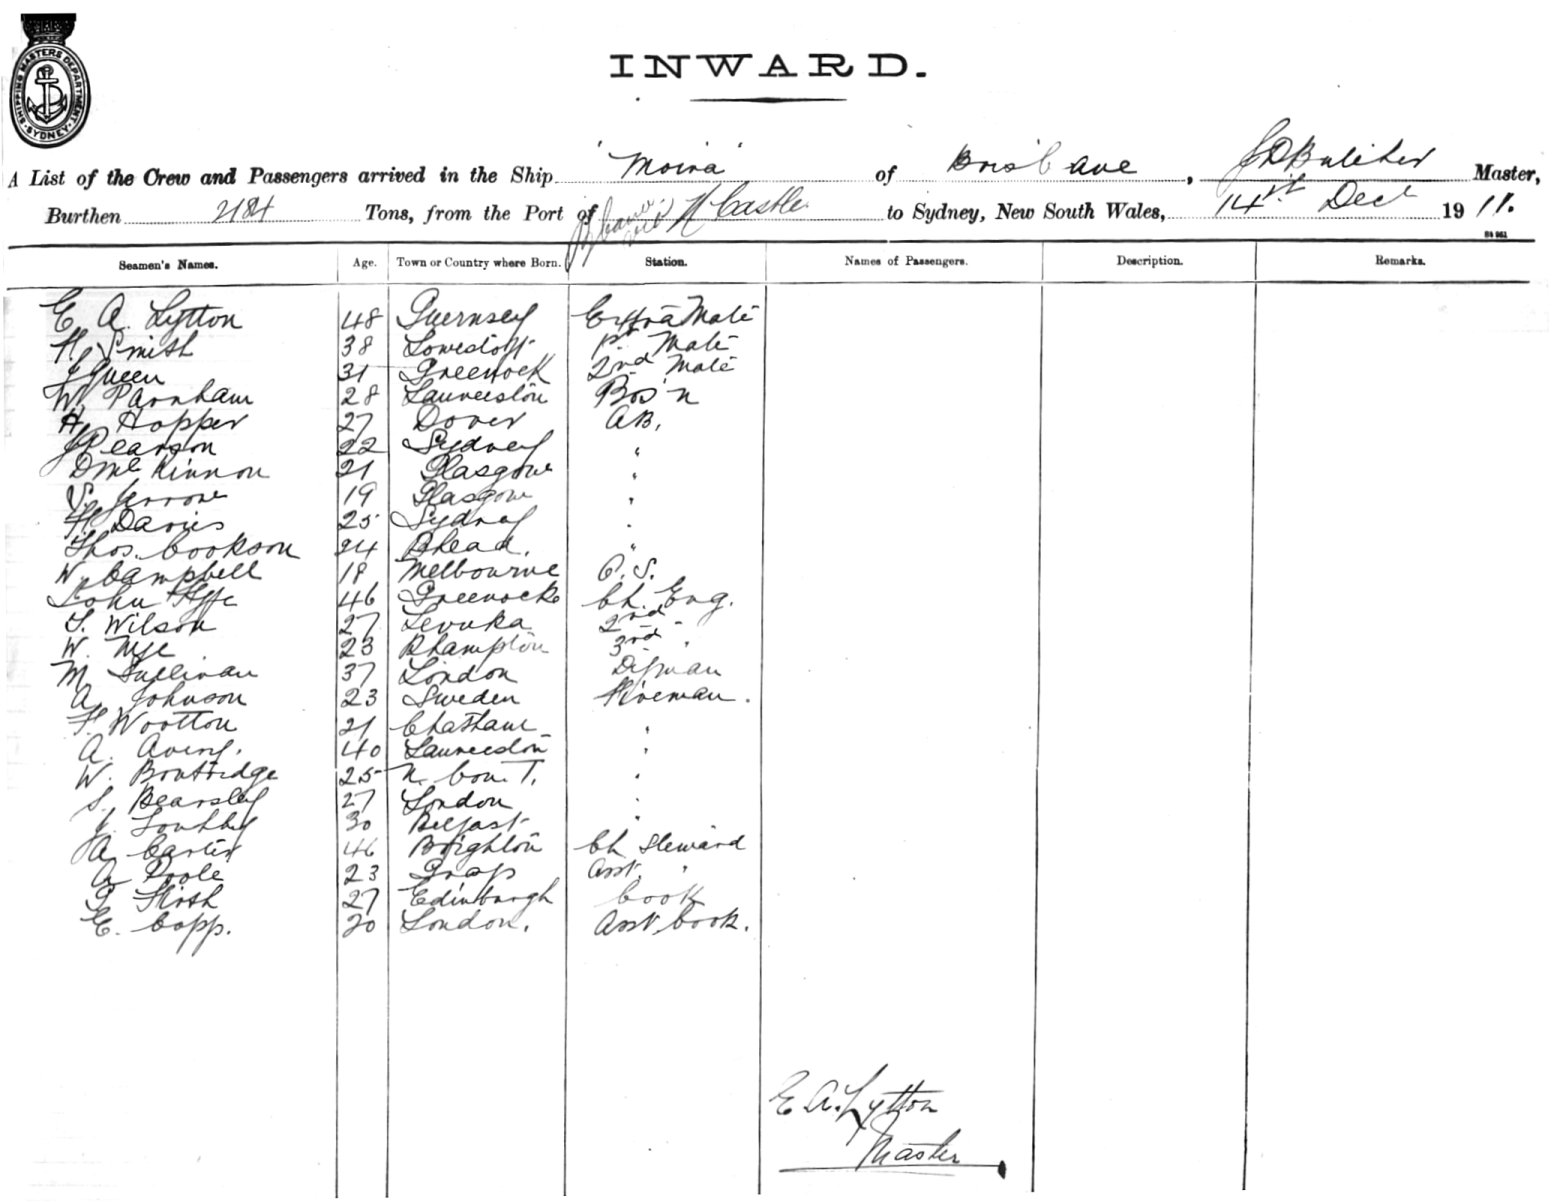 SHIPPING MASTERS DEPARTMENT SYDNEY
INWARD.
A List of the Crew and Passengers arrived in the Ship "Moira" of Brisbane, Master,
Burthen 2184 Tons, from the Port of N'Castle to Sydney, New South Wales, 14th Dec 1911.
Seamen's Names. Age. Town or Country where Born. Station. Names of Passengers. Description. Remarks.
E A. Lytton 48 Guernsey Extra Mate
H. Smith 38 Lowestoft 1st Mate
J Queen 31 Greenock 2nd Mate
W. Parnham 28 Launceston Bos'n
H. Hopper 27 Dover AB.
J Pearson 22 Sydney "
D McKinnon 21 Glasgow "
J. Jerrone 19 Glasgow "
H. Davies 25 Sydney "
Thos. Cookson 24 Bhead. "
W. Campbell 18 Melbourne O.S.
John Fyfe 46 Greenock Ch. Eng.
T. Wilson 27 Levuka 2nd "
W. Nye 23 Rhampton 3rd "
M Sullivan 37 London Dkyman
A. Johnson 23 Sweden Fireman.
F. Wootton 21 Chatham "
A. Avery. 40 Launceston "
W. Boutridge 25 N. Con. T. "
S. Bearsley 27 London "
J. Southby 30 Belfast "
A. Carter 46 Brighton Ch Steward
A. Poole 23 Asst. "
T. Firth 27 Edinburgh Cook
E. Copp. 20 London. Asst. Cook.
E A. Lytton
Master